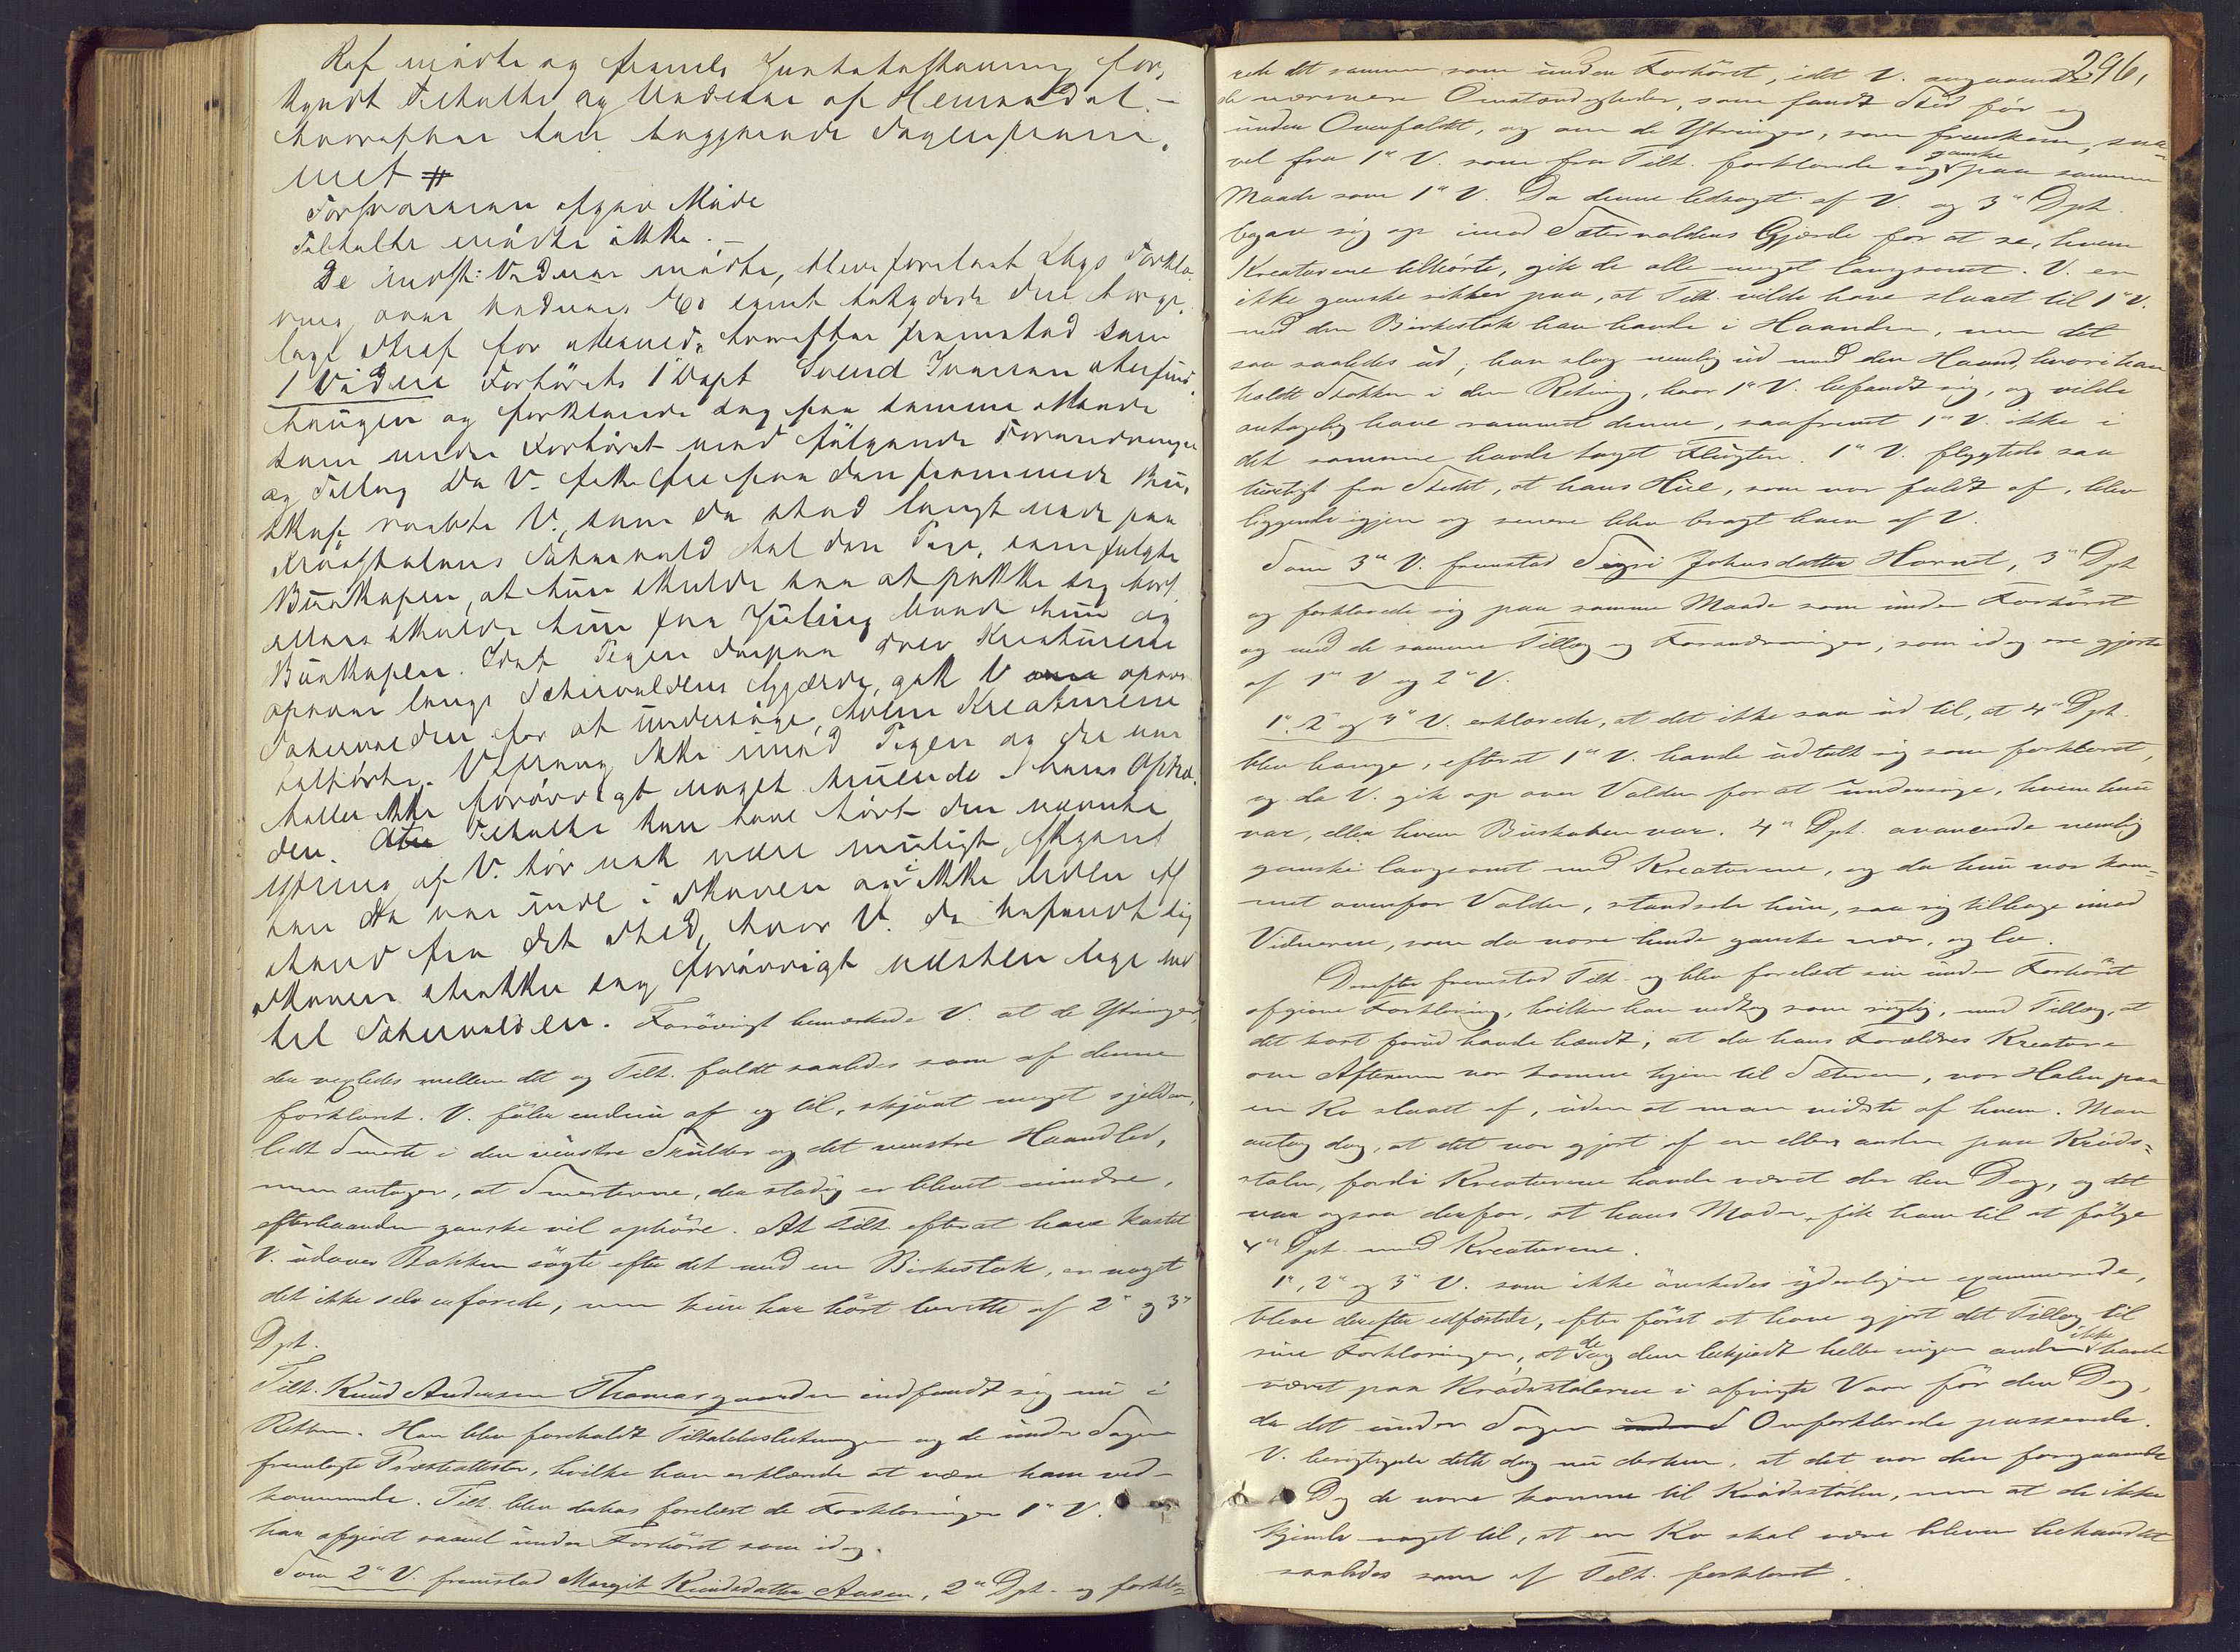 kyndt Tiltalte og Vidnerne af Hemsedal. –
hvorefter han begjærede Sagen frem-
met #
Forsvareren afgav Møde
Tiltalte mødte ikke. –
De indst: Vidner mødte, bleve forelæst Lovs Forkla-
ring over Vidners Ed samt betydede den borger-
lige Straf for Mened, hvorefter fremstod som
1 Vidne Forhørets 1 Dept Svend Iversen
haugen og forklarede sig paa samme Maade
som under Forhøret med følgende Forandringer
og Tillæg Da V. fik se paa den fremmede Bu-
skap, raabte V., som da stod langt nede paa
Sætervold til den Pige, som fulgte
Buskapen, at hun skulde see at pakke sig bort
ellers skulde hun faa Juling baade hun og
Buskapen. Idet Pigen derpaa drev Kreaturene
opover langs Sætervoldens Gjærde, gik V opover
Sætervolden for at undersøge, hvem Kreaturene
tilhørte. V sprang ikke imod Pigen og der var
heller ikke forøvrigt noget truende i hans Optræ-
den. Tiltalte kan have hørt den nævnte
Yttring af V. tør nok være muligt, skjønt
han da var inde i Skoven og ikke
stand fra det Sted, hvor V. da befandt sig
Skoven strækker sig forøvrigt næsten lige ned
til Sætervolden. Forøvrigt bemærkede V. at de Yttringer,
der vexledes mellem det og Tilt. faldt saaledes som af denne
forklaret. V. føler endnu af og til, skjønt meget sjelden,
lidt Smerte i den venstre Skulder og det venstre Haandled,
men antager, at Smerterne, der stadig er blevet mindre,
efterhaanden ganske vil ophøre. At Tilt. efter at have kastet
V. udover Bakken søgte efter det med en Birkestok, er noget
det ikke selv erfarede, men kun har hørt berette af 2" og 3"
Dpt.
Tilt. Knud Andersen Thomasgaarden indfandt sig nu i
Retten. Han blev foreholdt Tiltalebeslutningen og de under Sagen
fremlagte Præsteattester, hvilke han erklærede at være ham ved-
kommende. Tilt. blev derhos forelæst de Forklaringer 1" V.
har afgivet saavel under Forhøret som idag.
Som 2" V. fremstod Margit Knudsdatter Aasen, 2" Dpt. og forkla-
296,
rede det samme som under Forhøret, idet V. angaaende
de nærmere Omstændigheder, som fandt Sted før og
under Overfaldet, og om de Yttringer, som fremkom, saa-
vel fra 1" V. som fra Tilt. forklarede sig ganske paa samme
Maade som 1" V. Da denne ledsaget af V. og 3" Dpt.
begav sig op imod Sætervoldens Gjærde for at se, hvem
Kreaturene tilhørte, gik de alle meget langsomt. V. er
ikke ganske sikker paa, at Tilt. vilde have slaaet til 1" V.
med den Birkestok han havde i Haanden, men det
saa saaledes ud; han slog nemlig ud med den Haand, hvori han
holdt Stokken i den Retning, hvor 1" V. befandt sig, og vilde
antagelig have rammet denne, saafremt 1" V. ikke i
det samme havde taget Flugten. 1" V. flygtede saa
hurtigt fra Stedet, at hans Hue, som var faldt af, blev
liggende igjen og senere blev bragt ham af V.
Som 3" V. fremstod Sigri Johnsdatter Hornet, 3" Dpt
og forklarede sig paa samme Maade som under Forhøret
og med de samme Tillæg og Forandringer, som idag ere gjorte
af 1" V og 2" V.
1" 2" og 3" V. erklærede, at det ikke saa ud til, at 4" Dpt.
blev bange, efterat 1" V. havde udtalt sig som forklaret,
og da V. gik op over Volden for at undersøge, hvem hun
var, eller hvem Buskaben var. 4" Dpt. avancerede nemlig
ganske langsomt med Kreaturene, og da hun var kom-
met ovenfor Volden, standsede hun, saa sig tilbage imod
Vidnerne, som da vare hende ganske nær, og lo.
Derefter fremstod Tilt. og blev forelæst sin under Forhøret
afgivne Forklaring, hvilken han vedtog som rigtig, med Tillæg, at
det kort forud havde hændt, at da hans Forældres Kreature
om Aftenen var komne hjem til Sæteren, var Halen paa
en Ko slaaet af, uden at man vidste af hvem. Man
antog dog, at det var gjort af en eller anden paa Krøds-
stølen, fordi Kreaturene havde været der den Dag, og det
var ogsaa derfor, at hans Moder fik ham til at følge
4" Dpt. med Kreaturene.
1", 2" og 3" V. som ikke ønskedes yderligere examinerede,
bleve derefter edfæstede, efter først at have gjort det Tillæg til
sine Forklaringer, at de og dem bekjendt heller ingen anden ikke havde
været paa Krødsstølerne i afvigte Vaar før den Dag,
da det under Sagen Omforklarede passerede.
V. berigtigede dette dog nu derhen, at det var den foregaaende
Dag de vare komne til Krødsstølen, men at de ikke
kjende noget til, at en Ko skal være bleven behandlet
saaledes som af Tilt. forklaret.